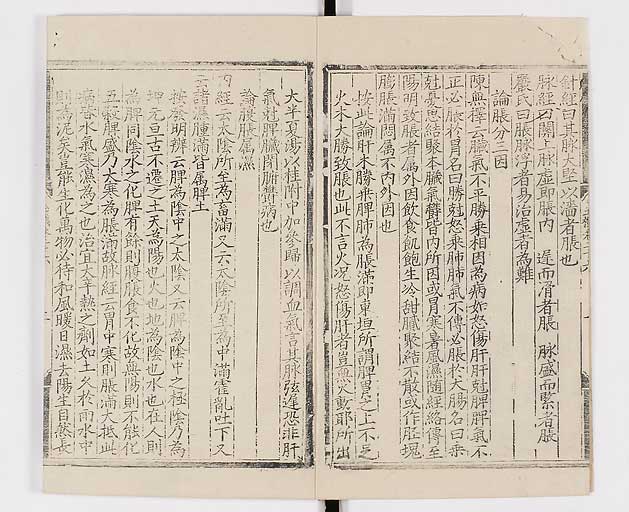 針經曰其脉大堅以濇者脹也
脉經曰關上脉虛即脹内　遲而滑者脹　脉盛而緊者脹
嚴氏曰脹脉浮者易治虛者為難
論脹分三因
陳無擇云臟氣不平勝乘相因為病如怒傷肝肝尅脾脾氣不
正必脹於胃名曰勝尅怒乘肺肺氣不傳必脹於大腸名曰乘
尅憂思結聚本臟氣鬱皆内所因或冒寒暑風濕随經絡傳至
陽明致脹者屬外因飲食飢飽生冷甜膩聚結不散或作胚塊
膨脹滿悶屬不内外因也
按此論肝木勝乘脾肺為脹滿即東垣所謂脾胃之上不足
火木大勝致脹也此不言火况怒傷肝者豈無火動耶所出
大半夏湯以桂附中加參歸以調血氣言其脉弦遲恐非肝
氣尅脾臟閉腑鬱病也
論腹脹屬濕
内經云太陰所至為畜滿又云太陰所至為中滿霍亂吐下又
云諸濕腫滿皆屬脾土
按發明辨云脾為陰中之太陰又云脾為陰中之極陰乃為
坤元亘古不遷之土天為陽也火也地為陰也水也在人則
為脾同陰水之化脾有餘則腹脹食不化故無陽則不能化
五穀脾盛乃大寒為脹滿故脉經云胃中寒則脹滿大抵此
病皆水氣寒濕為之也治宜大辛熱之劑如土久於雨水中
則為泥矣豈能生化萬物必待和風暖日濕去陽生自然長